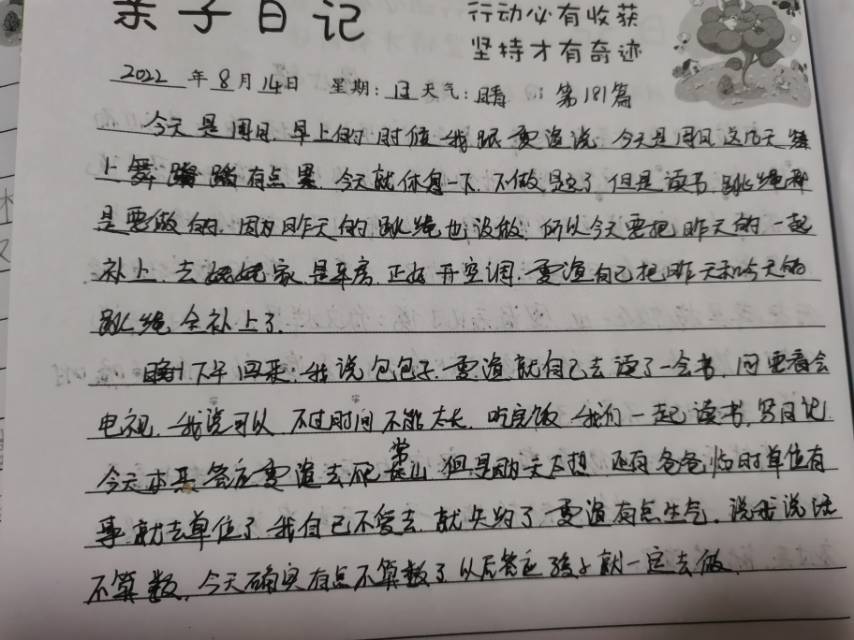 亲子日记
行动必有收获
坚持才有奇迹
2022年8月14日 星期:日 天气:晴 第181篇
今天是周日,早上的时候我跟雯渲说,今天是周日,这几天晚
上舞蹈有点累,今天就休息一下,不做了,但是读书,跳绳都
是要做的,因为昨天的跳绳也没做,所以今天要把昨天的一起
补上,去姥姥家,是车房,正好开空调,雯渲自己把昨天和今天的
跳绳全补上了.
下午回来,我说包包子,雯渲就自己去读了一会书,问要看会
电视,我说可以,不过时间不能太长,吃完饭,我们一起读书,写日记,
今天本来答应雯渲去爬常山,但是雨天不想,还有爸爸临时单位有
事就去单位了,我自己不爱去,就失约了,雯渲有点生气,说我说话
不算数,今天确实有点不算数了,以后答应孩子就一定去做.